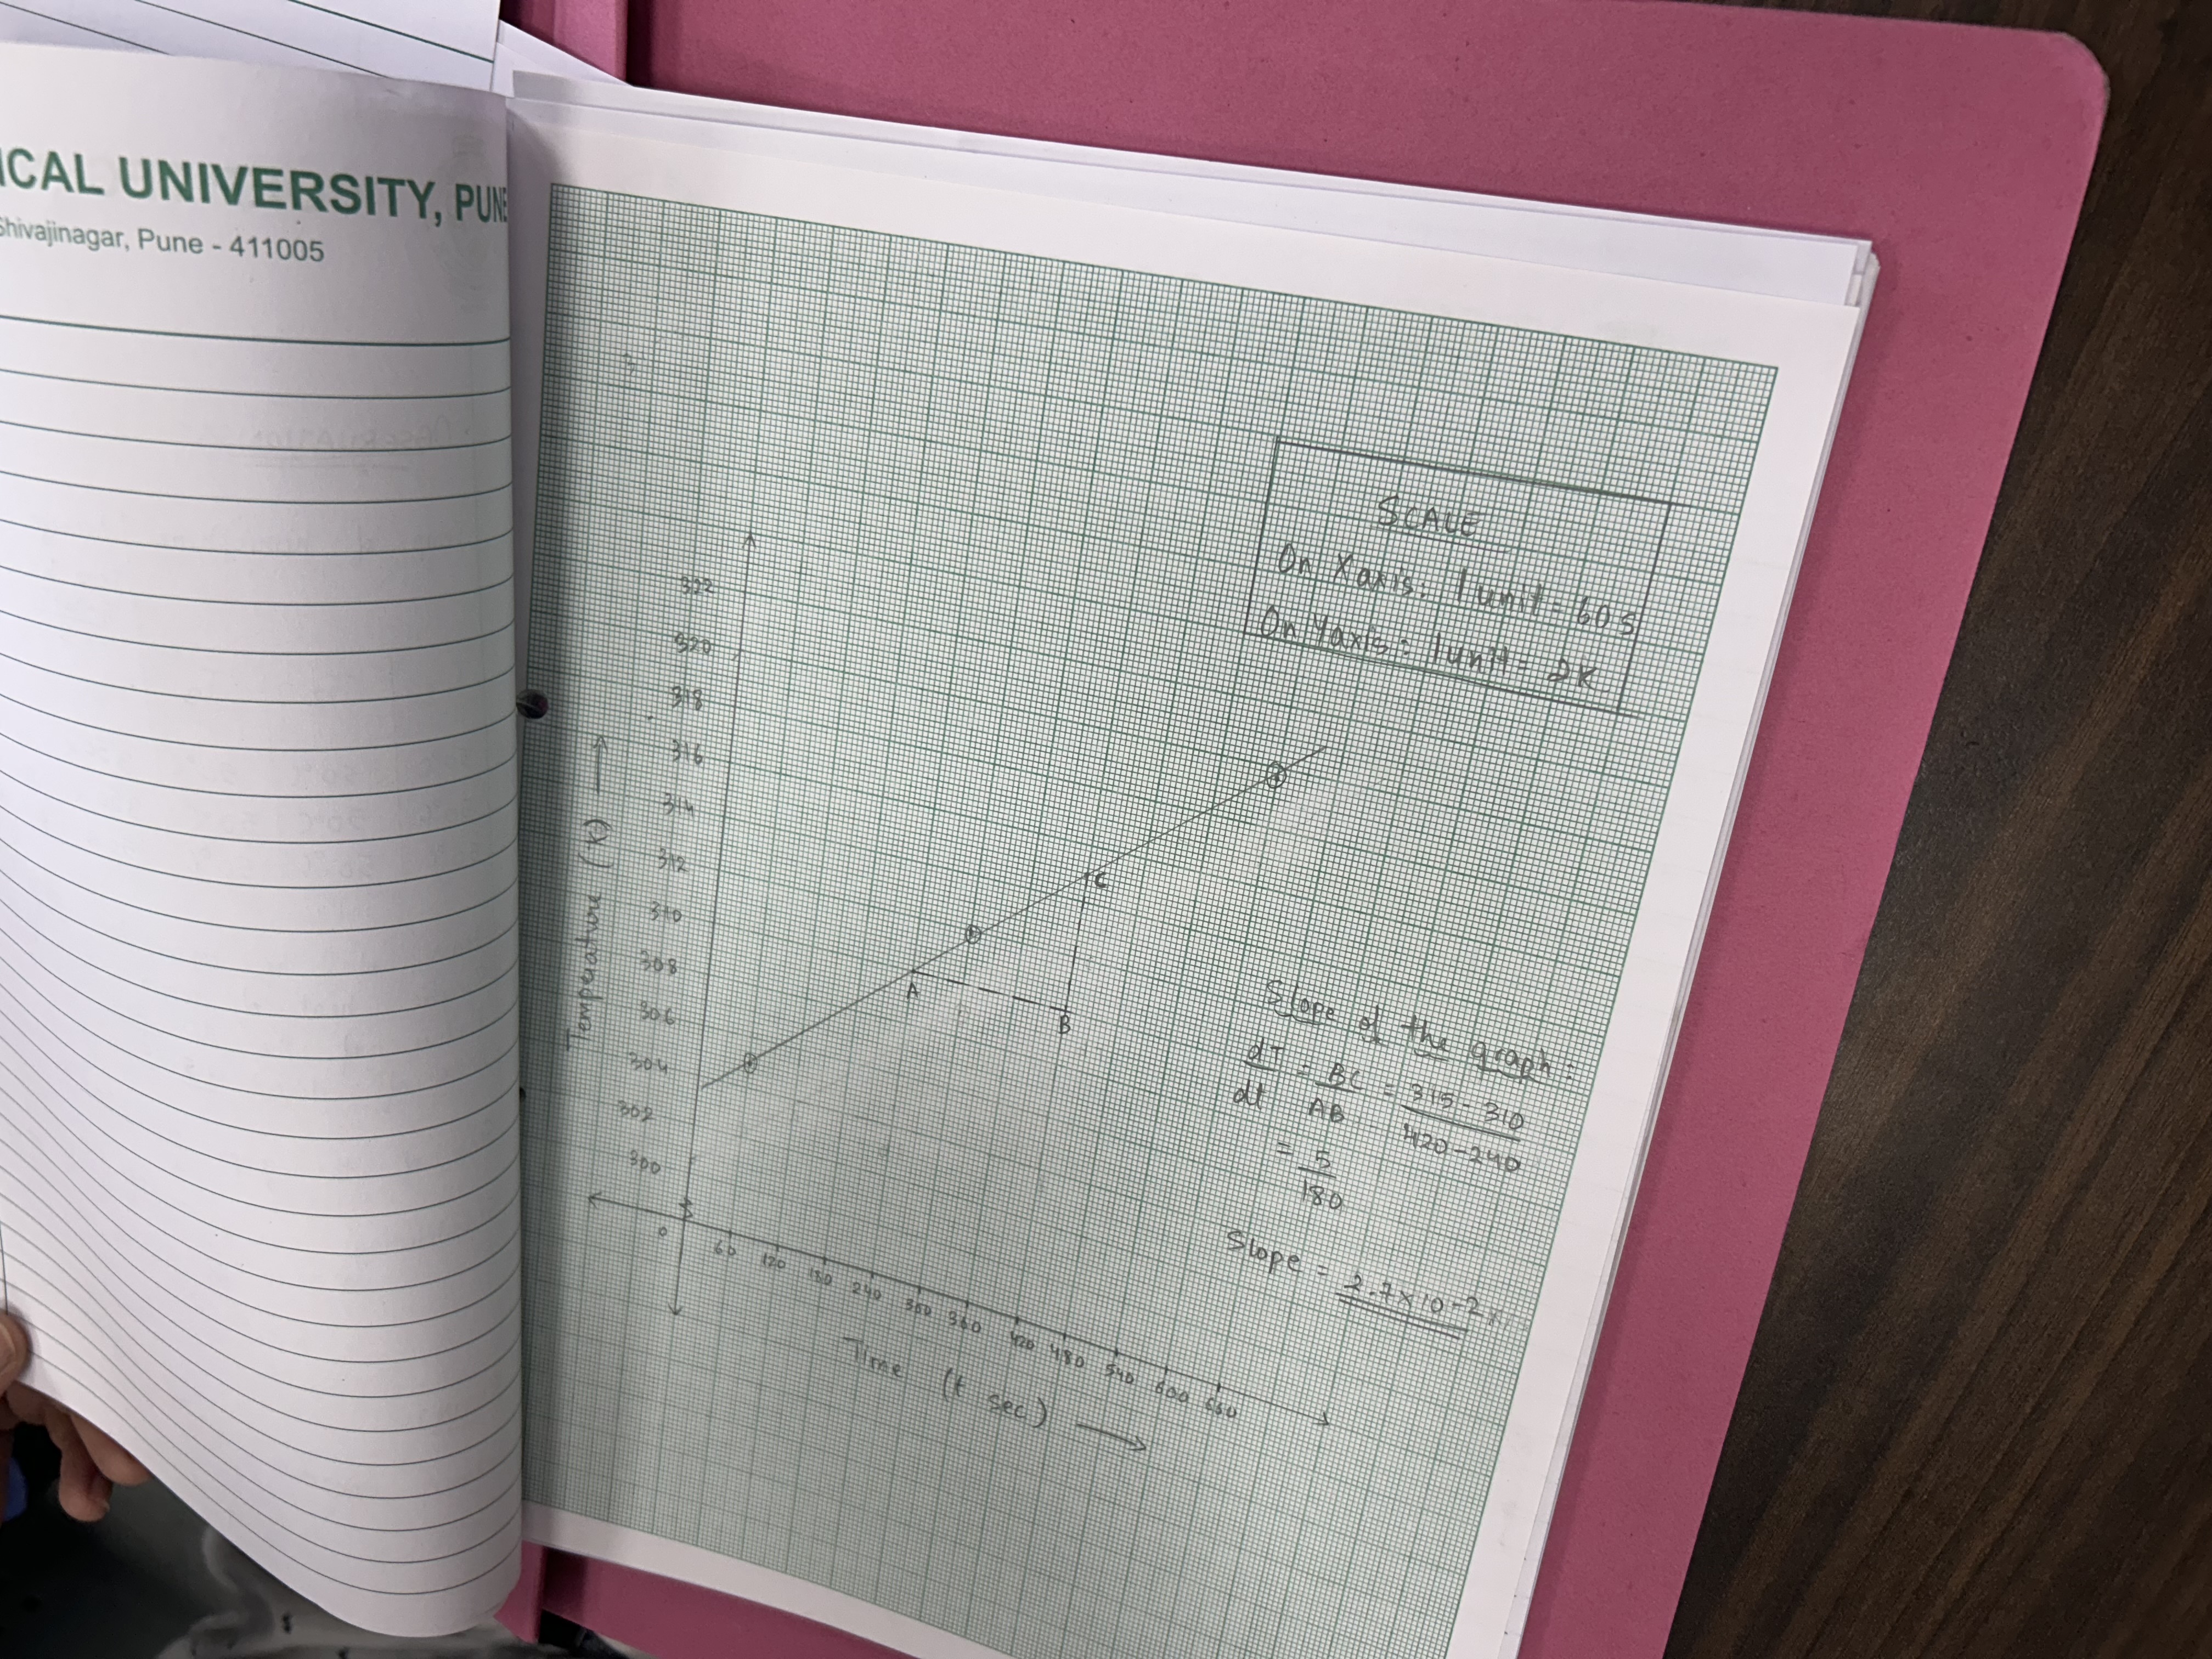 ICAL UNIVERSITY, PUNE
Shivajinagar, Pune - 411005
SCALE
On X axis: 1 unit = 60 s
On Y axis: 1 unit = 2K
322
320
318
316
314
312
310
308
306
304
302
300
Temperature (K)
A
B
C
0 60 120 180 240 300 360 420 480 540 600 660
Time (t sec)
Slope of the graph:
dT/dt = BC/AB = 315 - 310/420 - 240
= 5/180
Slope = 2.7 x 10-2